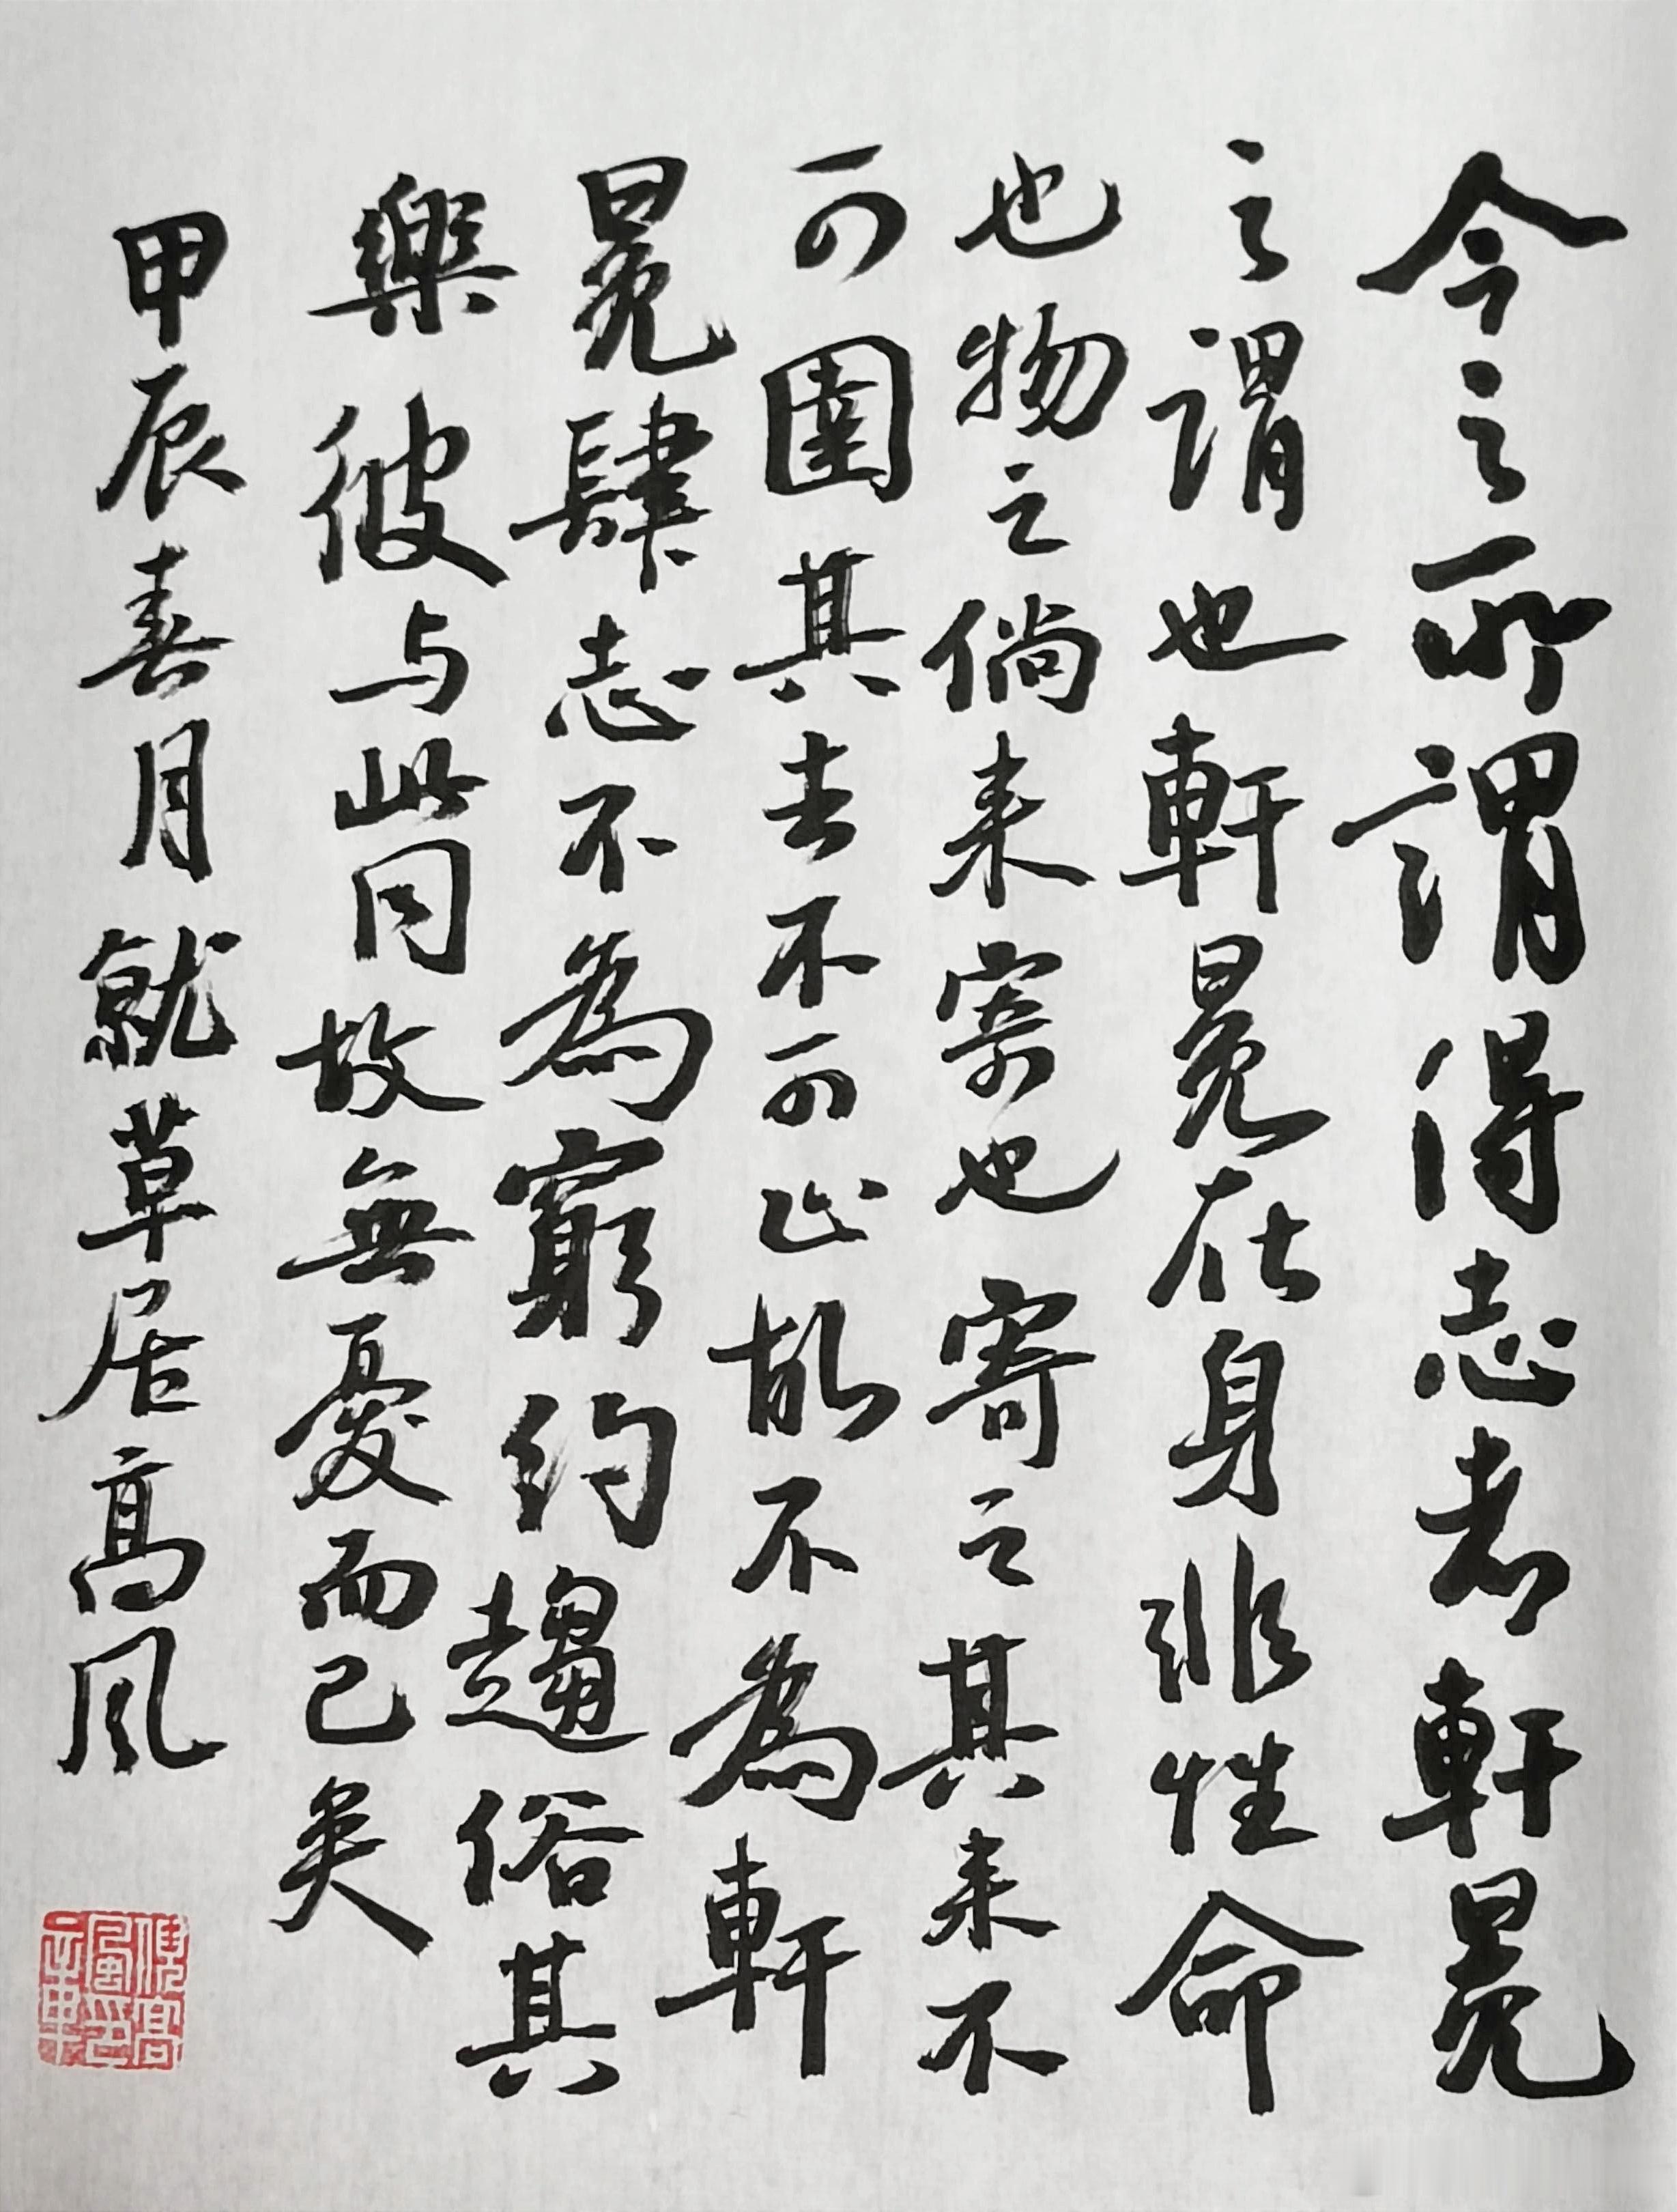 今之所謂得志者軒冕
之謂也軒冕在身非性命
也物之倘来寄也寄之其来不
可圉其去不可止故不為軒
冕肆志不為窮約趨俗其
樂彼与此同故無憂而已矣
甲辰春月就草居高风